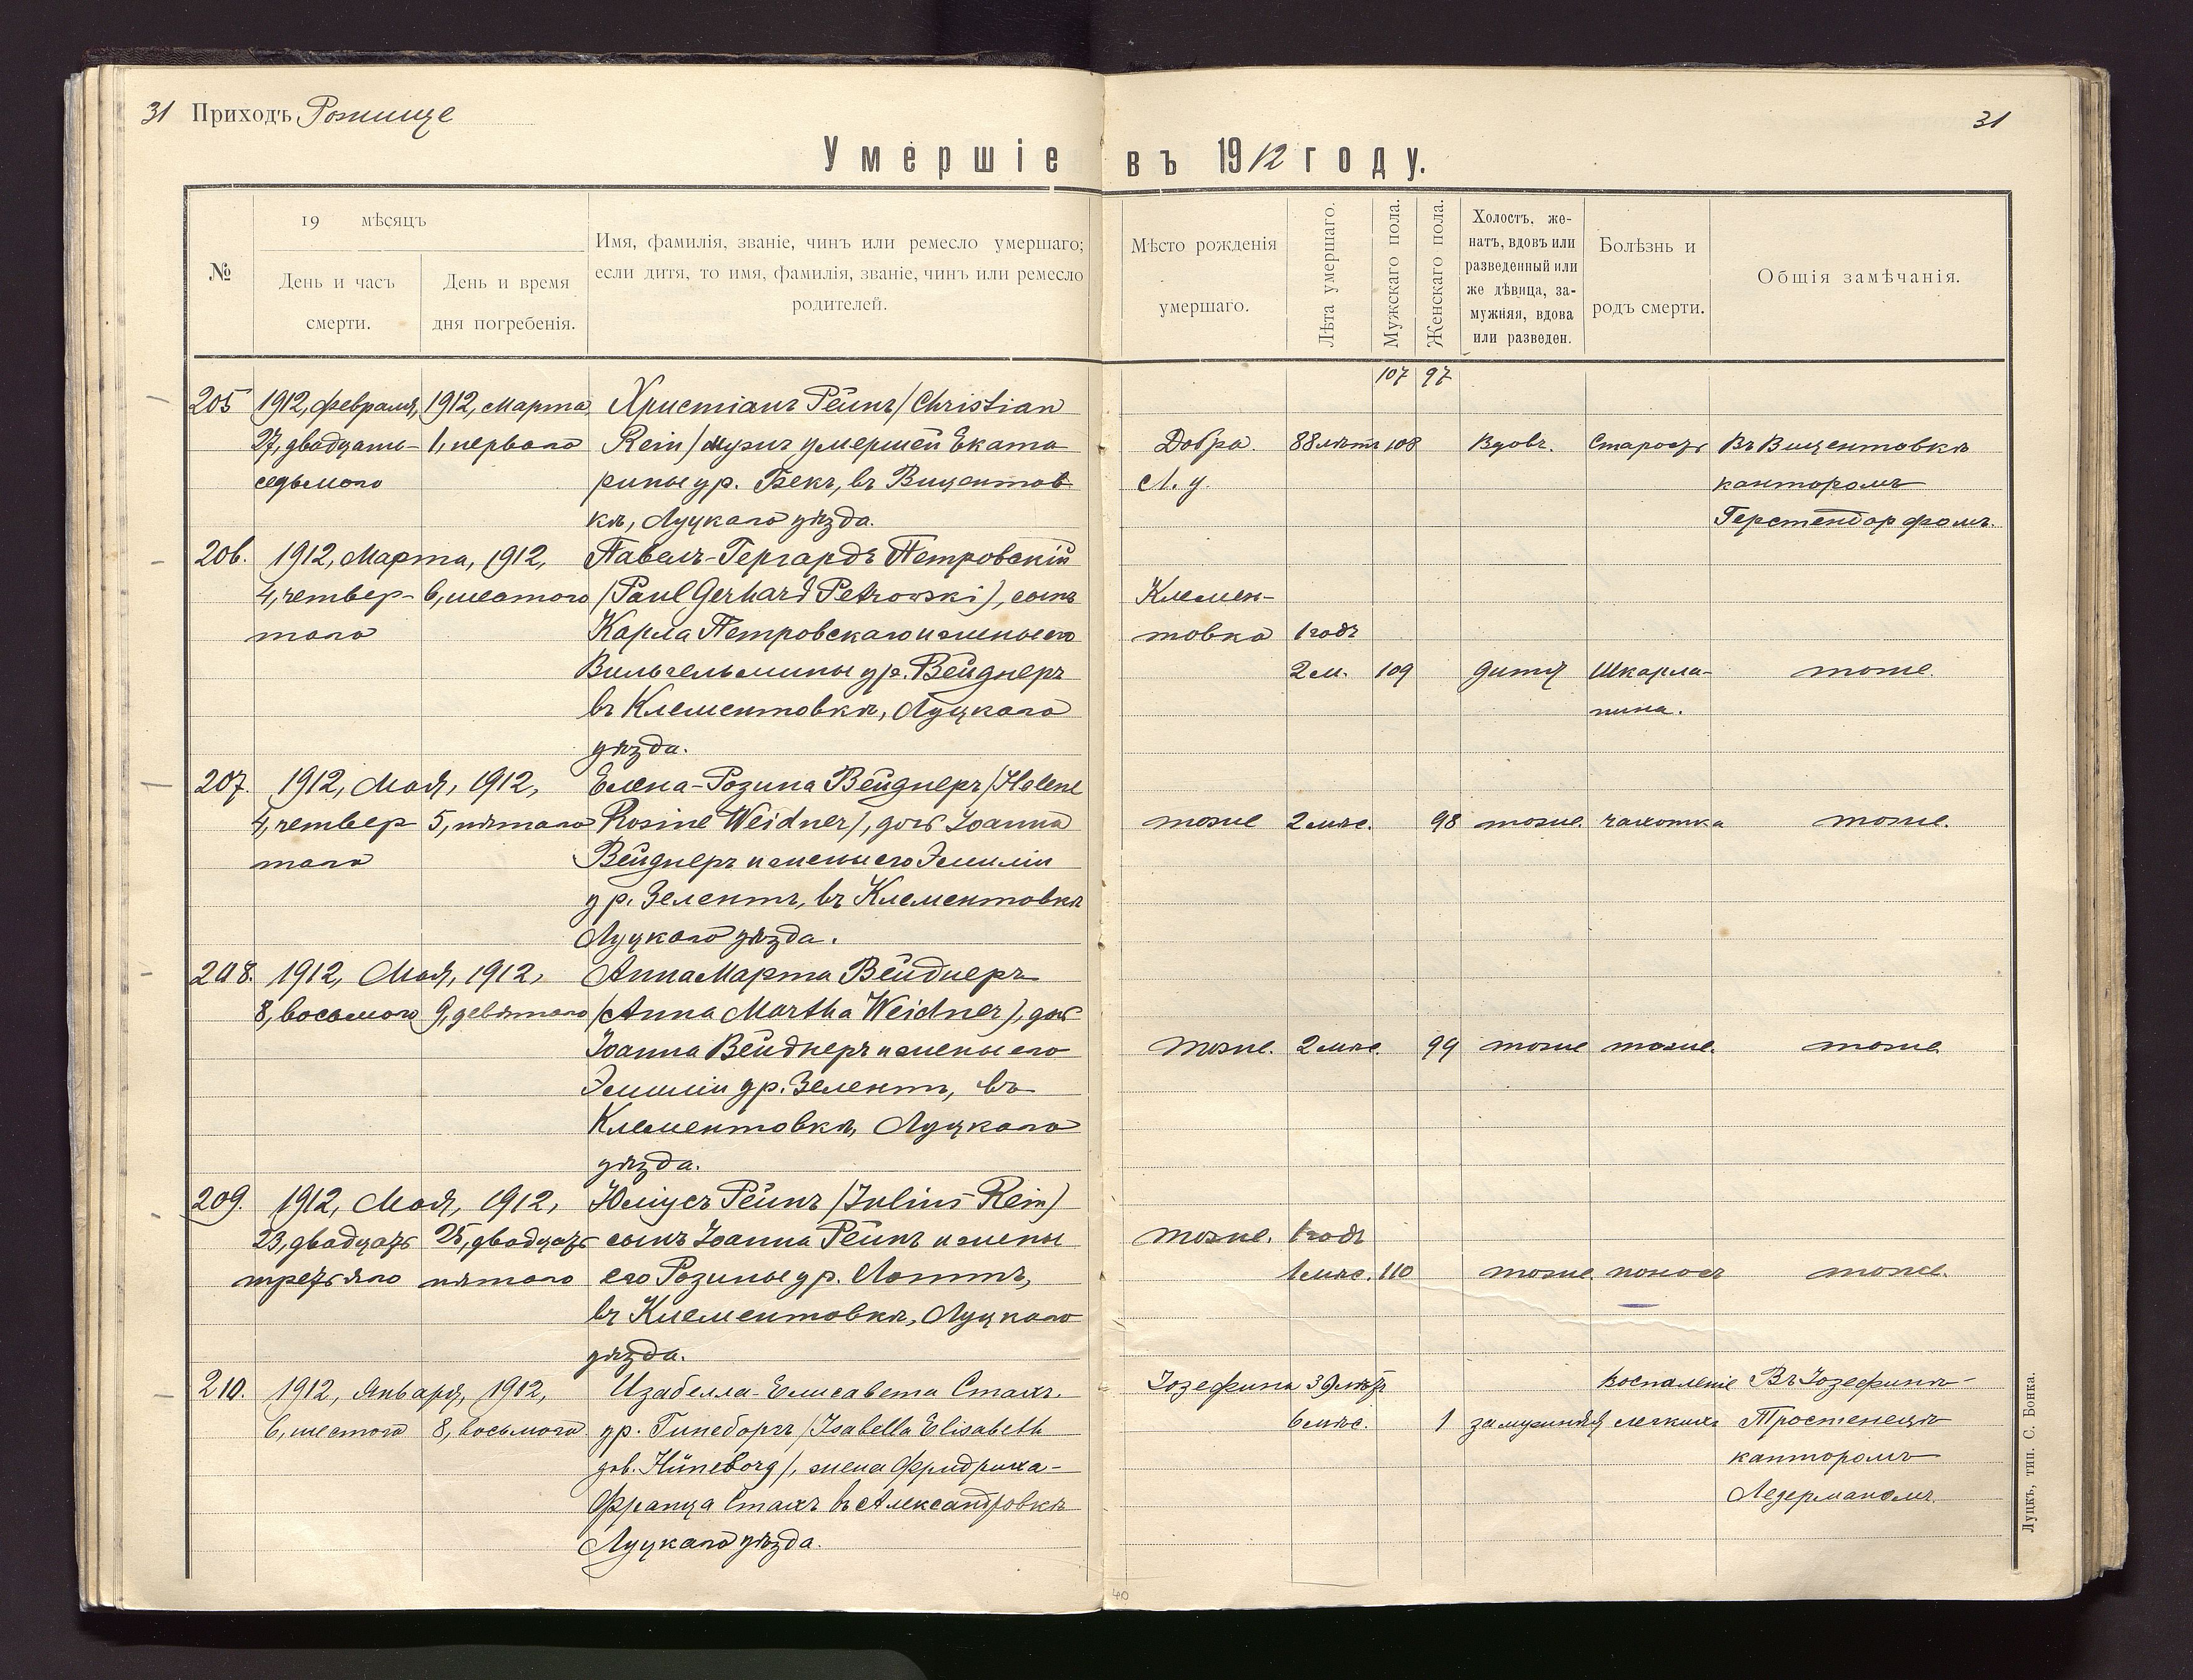 31 Приходъ Рожище
31
Умершіе въ 1912 году.
№
19 мѣсяцъ
День и часъ смерти.
День и время дня погребенія.
Имя, фамилія, званіе, чинъ или ремесло умершаго;
если дитя, то имя, фамилія, званіе, чинъ или ремесло
родителей.
Мѣсто рожденія
умершаго.
Лѣта умершаго.
Мужскаго пола.
Женскаго пола.
Холостъ, же-
натъ, вдовъ или
разведенный или
же дѣвица, за-
мужняя, вдова
или разведен.
Болѣзнь и
родъ смерти.
Общія замѣчанія.
107 97
205 1912, февраля, 1912, Марта Христіанъ Рейнъ /Christian
27, двадцать- 1, перваго Rein/ мужъ умершей Ката- Добра. 88 лѣтъ 108 Вдовъ. Старость Въ Вицентовкѣ
седьмого рины ур. Бекъ, въ Вицентов- Л. у. канторомъ
кѣ, Луцкаго уѣзда. Герстендорфомъ.
206. 1912, Марта, 1912, Павелъ-Гергардъ Петровскій
4, четвер- 6, шестого (Paul Gerhard Petrowski), сынъ Клемен-
таго Карла Петровскаго и жены его товка 1 годъ
Вильгельмины ур. Вейднеръ 2 м. 109 дитя Шкарла-
тоже.
въ Клементовкѣ, Луцкаго тина.
уѣзда.
207. 1912, Мая, 1912, Елена-Розина Вейднеръ /Helene
4, четвер- 5, пятаго Rosine Weidner/, дочь Іоанна тоже 2 мѣс. 98 тоже. чахотка тоже.
таго Вейднеръ и жены его Эмиліи
ур. Зелентъ, въ Клементовкѣ
Луцкаго уѣзда.
208. 1912, Мая, 1912, Анна Марта Вейднеръ
8, восьмого 9, девятаго /Anna Martha Weidner), дочь
Іоанна Вейднеръ и жены его тоже. 2 мѣс. 99 тоже тоже. тоже
Эмиліи ур. Зелентъ, въ
Клементовкѣ, Луцкаго
уѣзда.
209. 1912, Мая, 1912, Юліусъ Рейнъ /Julius Rein)
23, двадцать 25, двадцать сынъ Іоанна Рейнъ и жены тоже. 1 годъ
третьяго пятаго его Розины ур. Лоттъ, 1 мѣс. 110 тоже поносъ тоже.
въ Клементовкѣ, Луцкаго
уѣзда.
210. 1912, Января, 1912, Изабелла-Елисавета Стахъ Іозефина 39 лѣтъ воспаленіе Въ Іозефинѣ-
6, шестого 8, восьмого ур. Гинеборгъ /Isabella Elisabeth 6 мѣс. 1 замужняя легкихъ Тростенецъ
geb. Hüneborg/, жена Фридриха- канторомъ
Франца Стахъ въ Александровкѣ Ледерманомъ.
Луцкаго уѣзда.
Луцкъ, тип. С. Бонка.
40